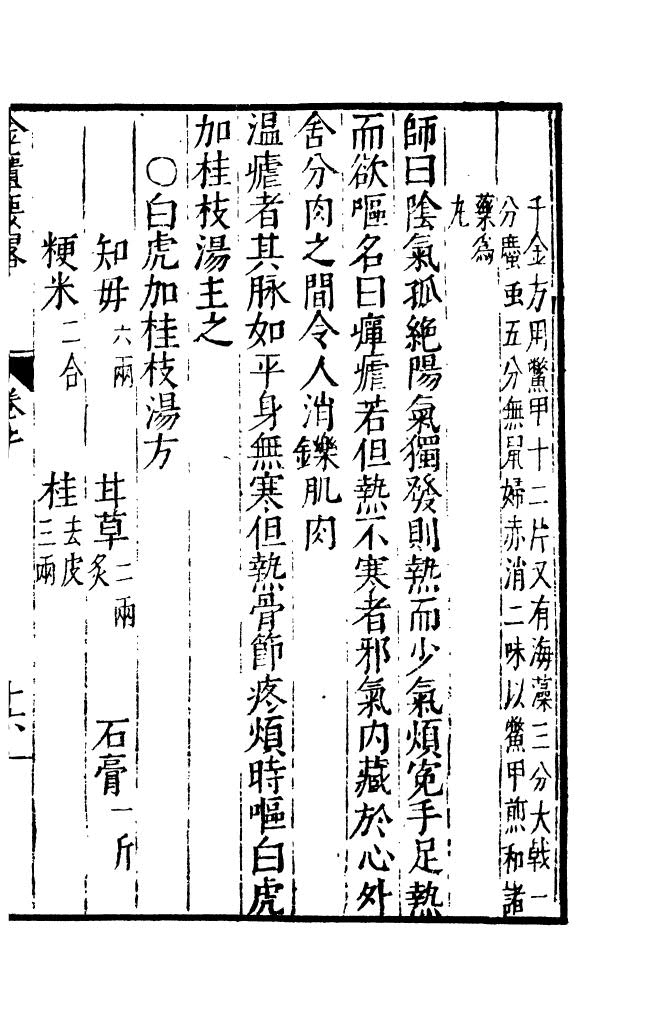 千金方用鱉甲十二片又有海藻三分大戟一
分䗪虫五分無鼠婦赤消二味以鱉甲煎和諸
藥為
丸
師曰陰氣孤絶陽氣獨發則熱而少氣煩寃手足熱
而欲嘔名曰癉瘧若但熱不寒者邪氣内藏於心外
舍分肉之間令人消鑠肌肉
温瘧者其脉如平身無寒但熱骨節疼煩時嘔白虎
加桂枝湯主之
○白虎加桂枝湯方
知母六兩 甘草二兩炙 石膏一斤
粳米二合 桂去皮三兩
金匱要畧 卷上 十六